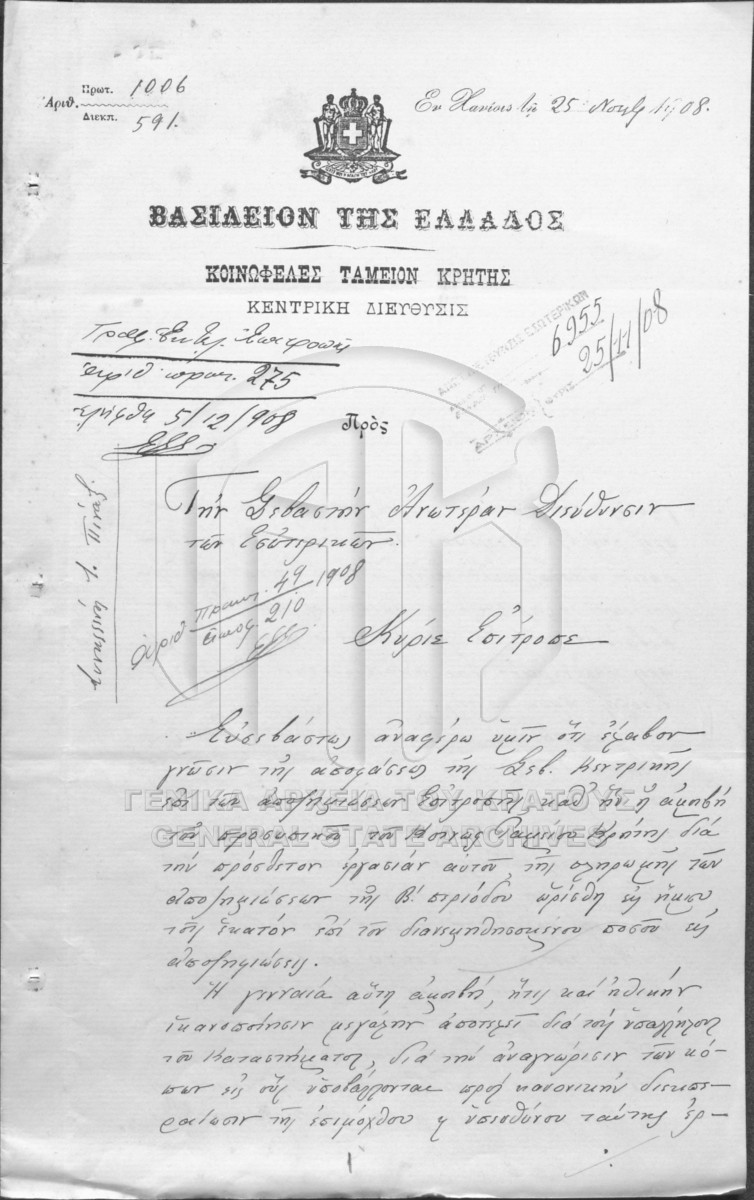 Πρωτ. 1006
Ἀριθ.
Διεκπ. 591.
Ἐν Χανίοις τῇ 25 Νοεμβ 1908.
ΒΑΣΙΛΕΙΟΝ ΤΗΣ ΕΛΛΑΔΟΣ
ΚΟΙΝΩΦΕΛΕΣ ΤΑΜΕΙΟΝ ΚΡΗΤΗΣ
ΚΕΝΤΡΙΚΗ ΔΙΕΥΘΥΣΙΣ
ΔΙΕΥΘΥΝΣΙΣ ΕΣΩΤΕΡΙΚΩΝ
6955
25/11/08
ἀριθ πρωτ. 275
ἐλήφθη 5/12/908
Πρὸς
Τὴν Σεβαστὴν Ἀνωτέραν Διεύθυνσιν
τῶν Ἐσωτερικῶν.
Ἀριθ Πρακτ. 49 1908
210
Κύριε Ἐπίτροπε
Εὐσεβάστως ἀναφέρω ὑμῖν ὅτι ἔλαβον
γνῶσιν τῆς ἀποφάσεως τῆς Σεβ. Κεντρικῆς
ἐπὶ τῶν ἀποζημιώσεων Ἐπιτροπῆς καθ' ἣν ἡ ἀμοιβὴ
τοῦ προσωπικοῦ τοῦ Κοινωφ Ταμείου Κρήτης διὰ
τὴν πρόσθετον ἐργασίαν αὐτοῦ, τῆς πληρωμῆς τῶν
ἀποζημιώσεων τῆς Β' περιόδου ὡρίσθη εἰς ἥμισυ
τοῖς ἑκατὸν ἐπὶ τοῦ διανεμηθησομένου ποσοῦ εἰς
ἀποζημιώσεις.
Ἡ γενναία αὕτη ἀμοιβή, ἥτις καὶ ἠθικὴν
ἱκανοποίησιν μεγάλην ἀποτελεῖ διὰ τοὺς ὑπαλλήλους
τοῦ Καταστήματος, διὰ τὴν ἀναγνώρισιν τῶν κό-
πων εἰς οὓς ὑποβάλλονται πρὸς κανονικὴν διεκπε-
ραίωσιν τῆς ἐπιμόχθου κ ὑπευθύνου ταύτης ἐρ-
ΓΕΝΙΚΑ ΑΡΧΕΙΑ ΤΟΥ ΚΡΑΤΟΥΣ
GENERAL STATE ARCHIVES